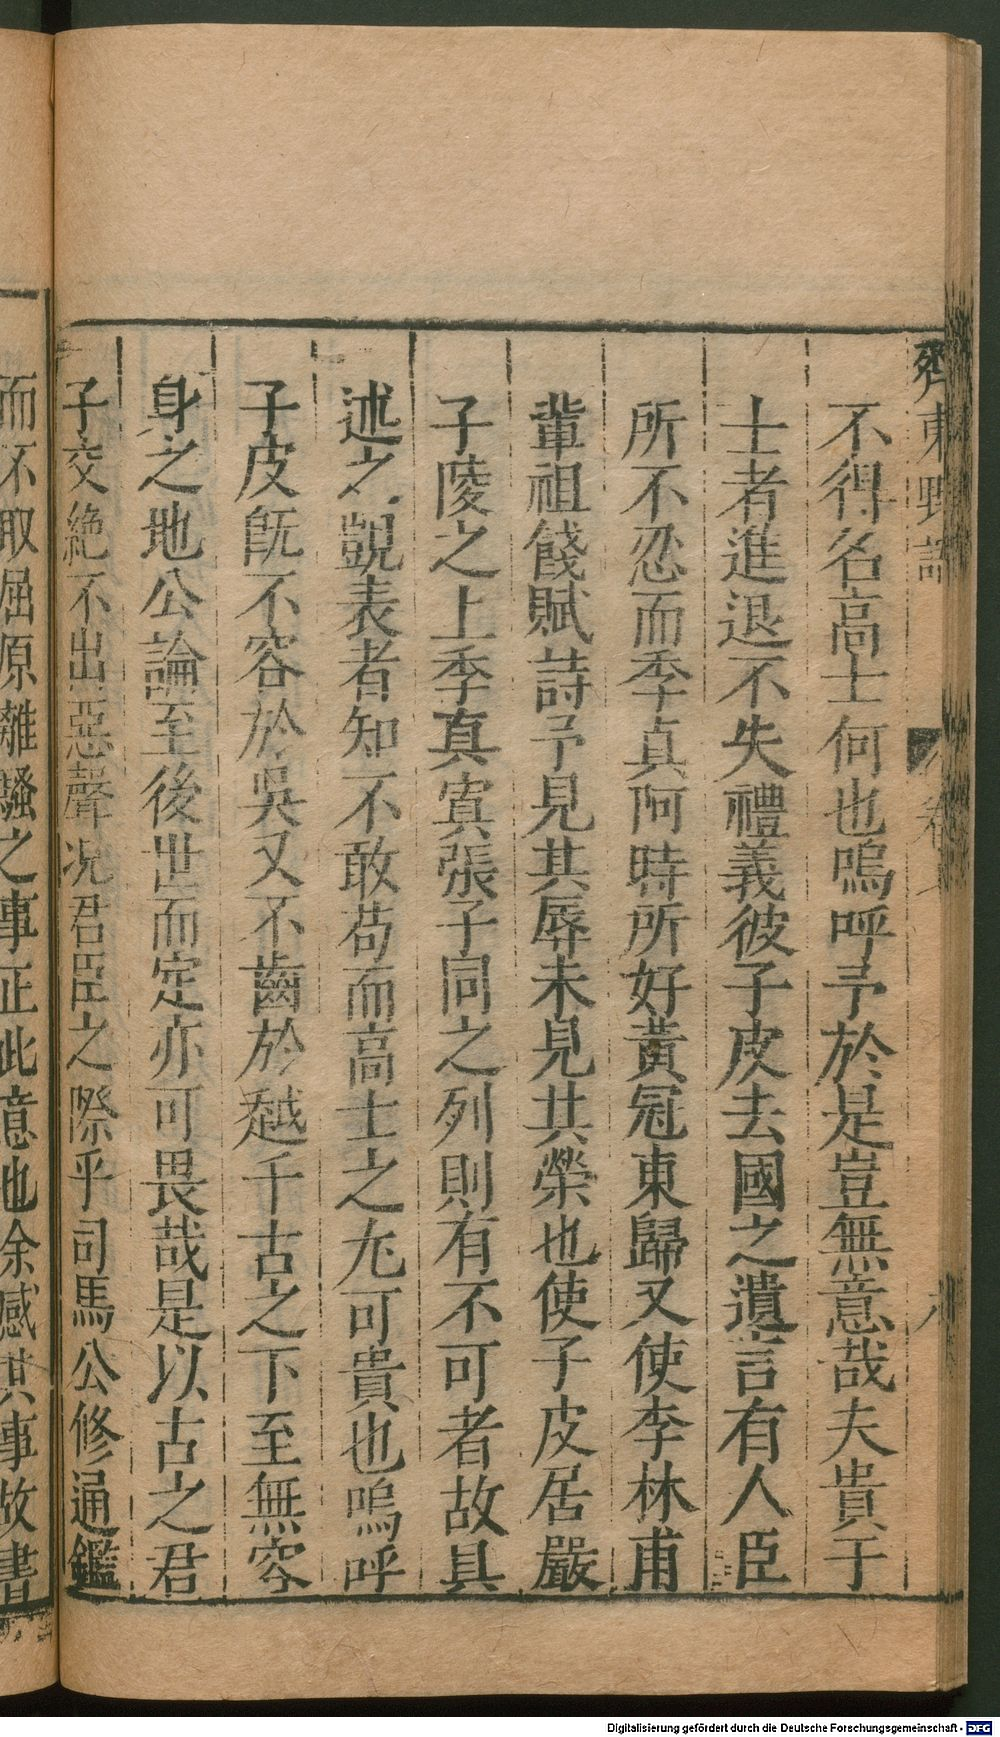 齊東野語 卷 九
不得名高士何也嗚呼予於是豈無意哉夫貴于
士者進退不失禮義彼子皮去國之遺言有人臣
所不忍而季貞阿時所好黃冠東歸又使李林甫
輩祖餞賦詩予見其辱未見其榮也使子皮居嚴
子陵之上季真寘張子同之列則有不可者故具
述之覬表者知不敢苟而高士之尤可貴也嗚呼
子皮既不容於吳又不齒於越千古之下至無容
身之地公論至後世而定亦可畏哉是以古之君
子交絕不出惡聲况君臣之際乎司馬公修通鑑
而不取屈原離騷之事正此意也余感其事故書
Digitalisierung gefördert durch die Deutsche Forschungsgemeinschaft - DFG